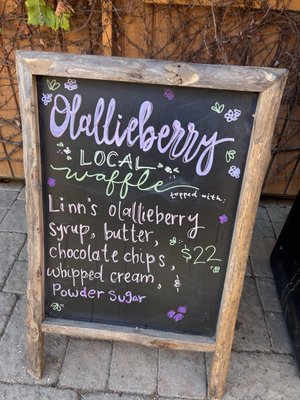 Olallieberry
LOCAL
waffle topped with:
Linn's olallieberry
syrup, butter,
chocolate chips, $22
whipped cream, &
Powder Sugar